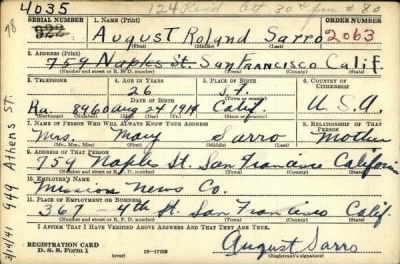 4035
SERIAL NUMBER
1. NAME (Print)
ORDER NUMBER
922
August Roland Sarro
2063
(First) (Middle) (Last)
2. ADDRESS (Print)
759 Naples St. San Francisco Calif.
(Number and street or R. F. D. number) (Town) (County) (State)
3. TELEPHONE
4. AGE IN YEARS
5. PLACE OF BIRTH
6. COUNTRY OF CITIZENSHIP
26
S.F.
DATE OF BIRTH
(Town or county)
Ra. 8960
Aug 24 1914
Calif.
U.S.A.
(Exchange) (Number)
(Mo.) (Day) (Yr.)
(State or country)
7. NAME OF PERSON WHO WILL ALWAYS KNOW YOUR ADDRESS
8. RELATIONSHIP OF THAT PERSON
Mrs. Mary Sarro
Mother
(Mr., Mrs., Miss) (First) (Middle) (Last)
9. ADDRESS OF THAT PERSON
759 Naples St. San Francisco California
(Number and street or R. F. D. number) (Town) (County) (State)
10. EMPLOYER'S NAME
Mission News Co.
11. PLACE OF EMPLOYMENT OR BUSINESS
367 - 4th St. San Francisco Calif.
(Number and street or R. F. D. number) (Town) (County) (State)
I AFFIRM THAT I HAVE VERIFIED ABOVE ANSWERS AND THAT THEY ARE TRUE.
REGISTRATION CARD
D. S. S. Form 1
16-17105
August Sarro
(Registrant's signature)
3/14/41 949 Athens St.